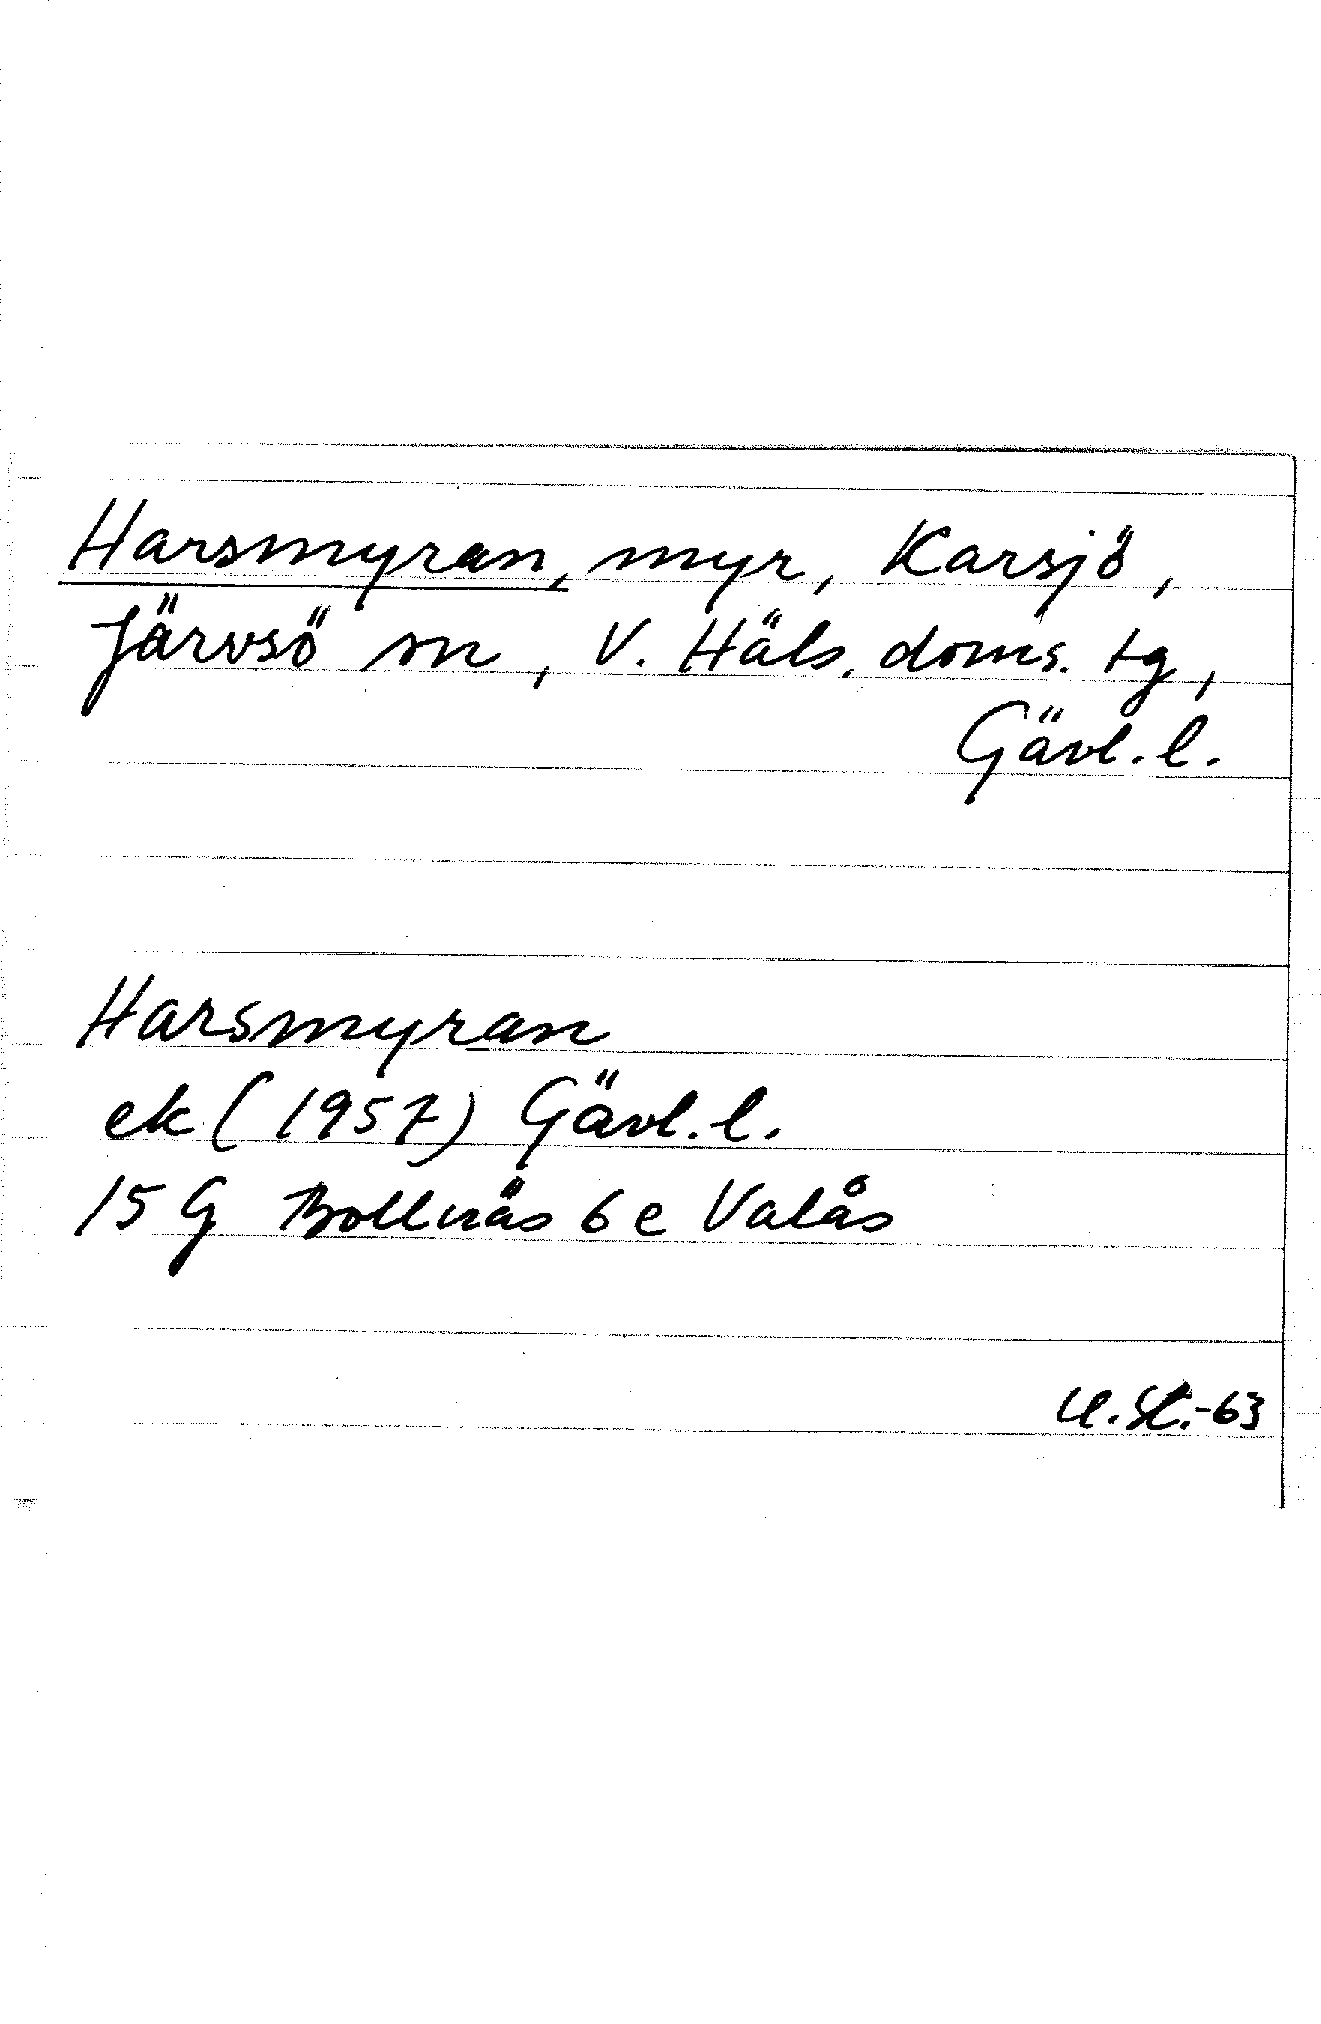 Harsmyran, myr, Karsjö,
Järvsö sn, V. Häls. doms. tg,
Gävl. l.
Harsmyran
ek (1957) Gävl. l.
15 G Bollnäs 6 e Valås
-63